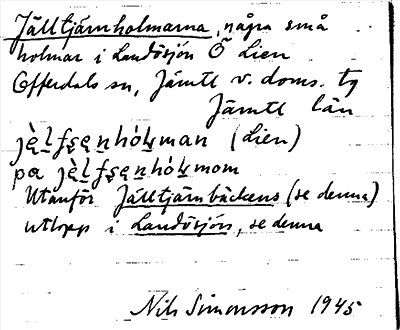 Jälltjärnholmarna, några små
holmar i Landösjön Ö Lien
Offerdals sn, Jämtl v. doms. tg
Jämtl län
(Lien)
pa
Utanför Jälltjärnbäckens (se denna)
utlopp i Landösjön, se denna
Nils Simonsson 1945